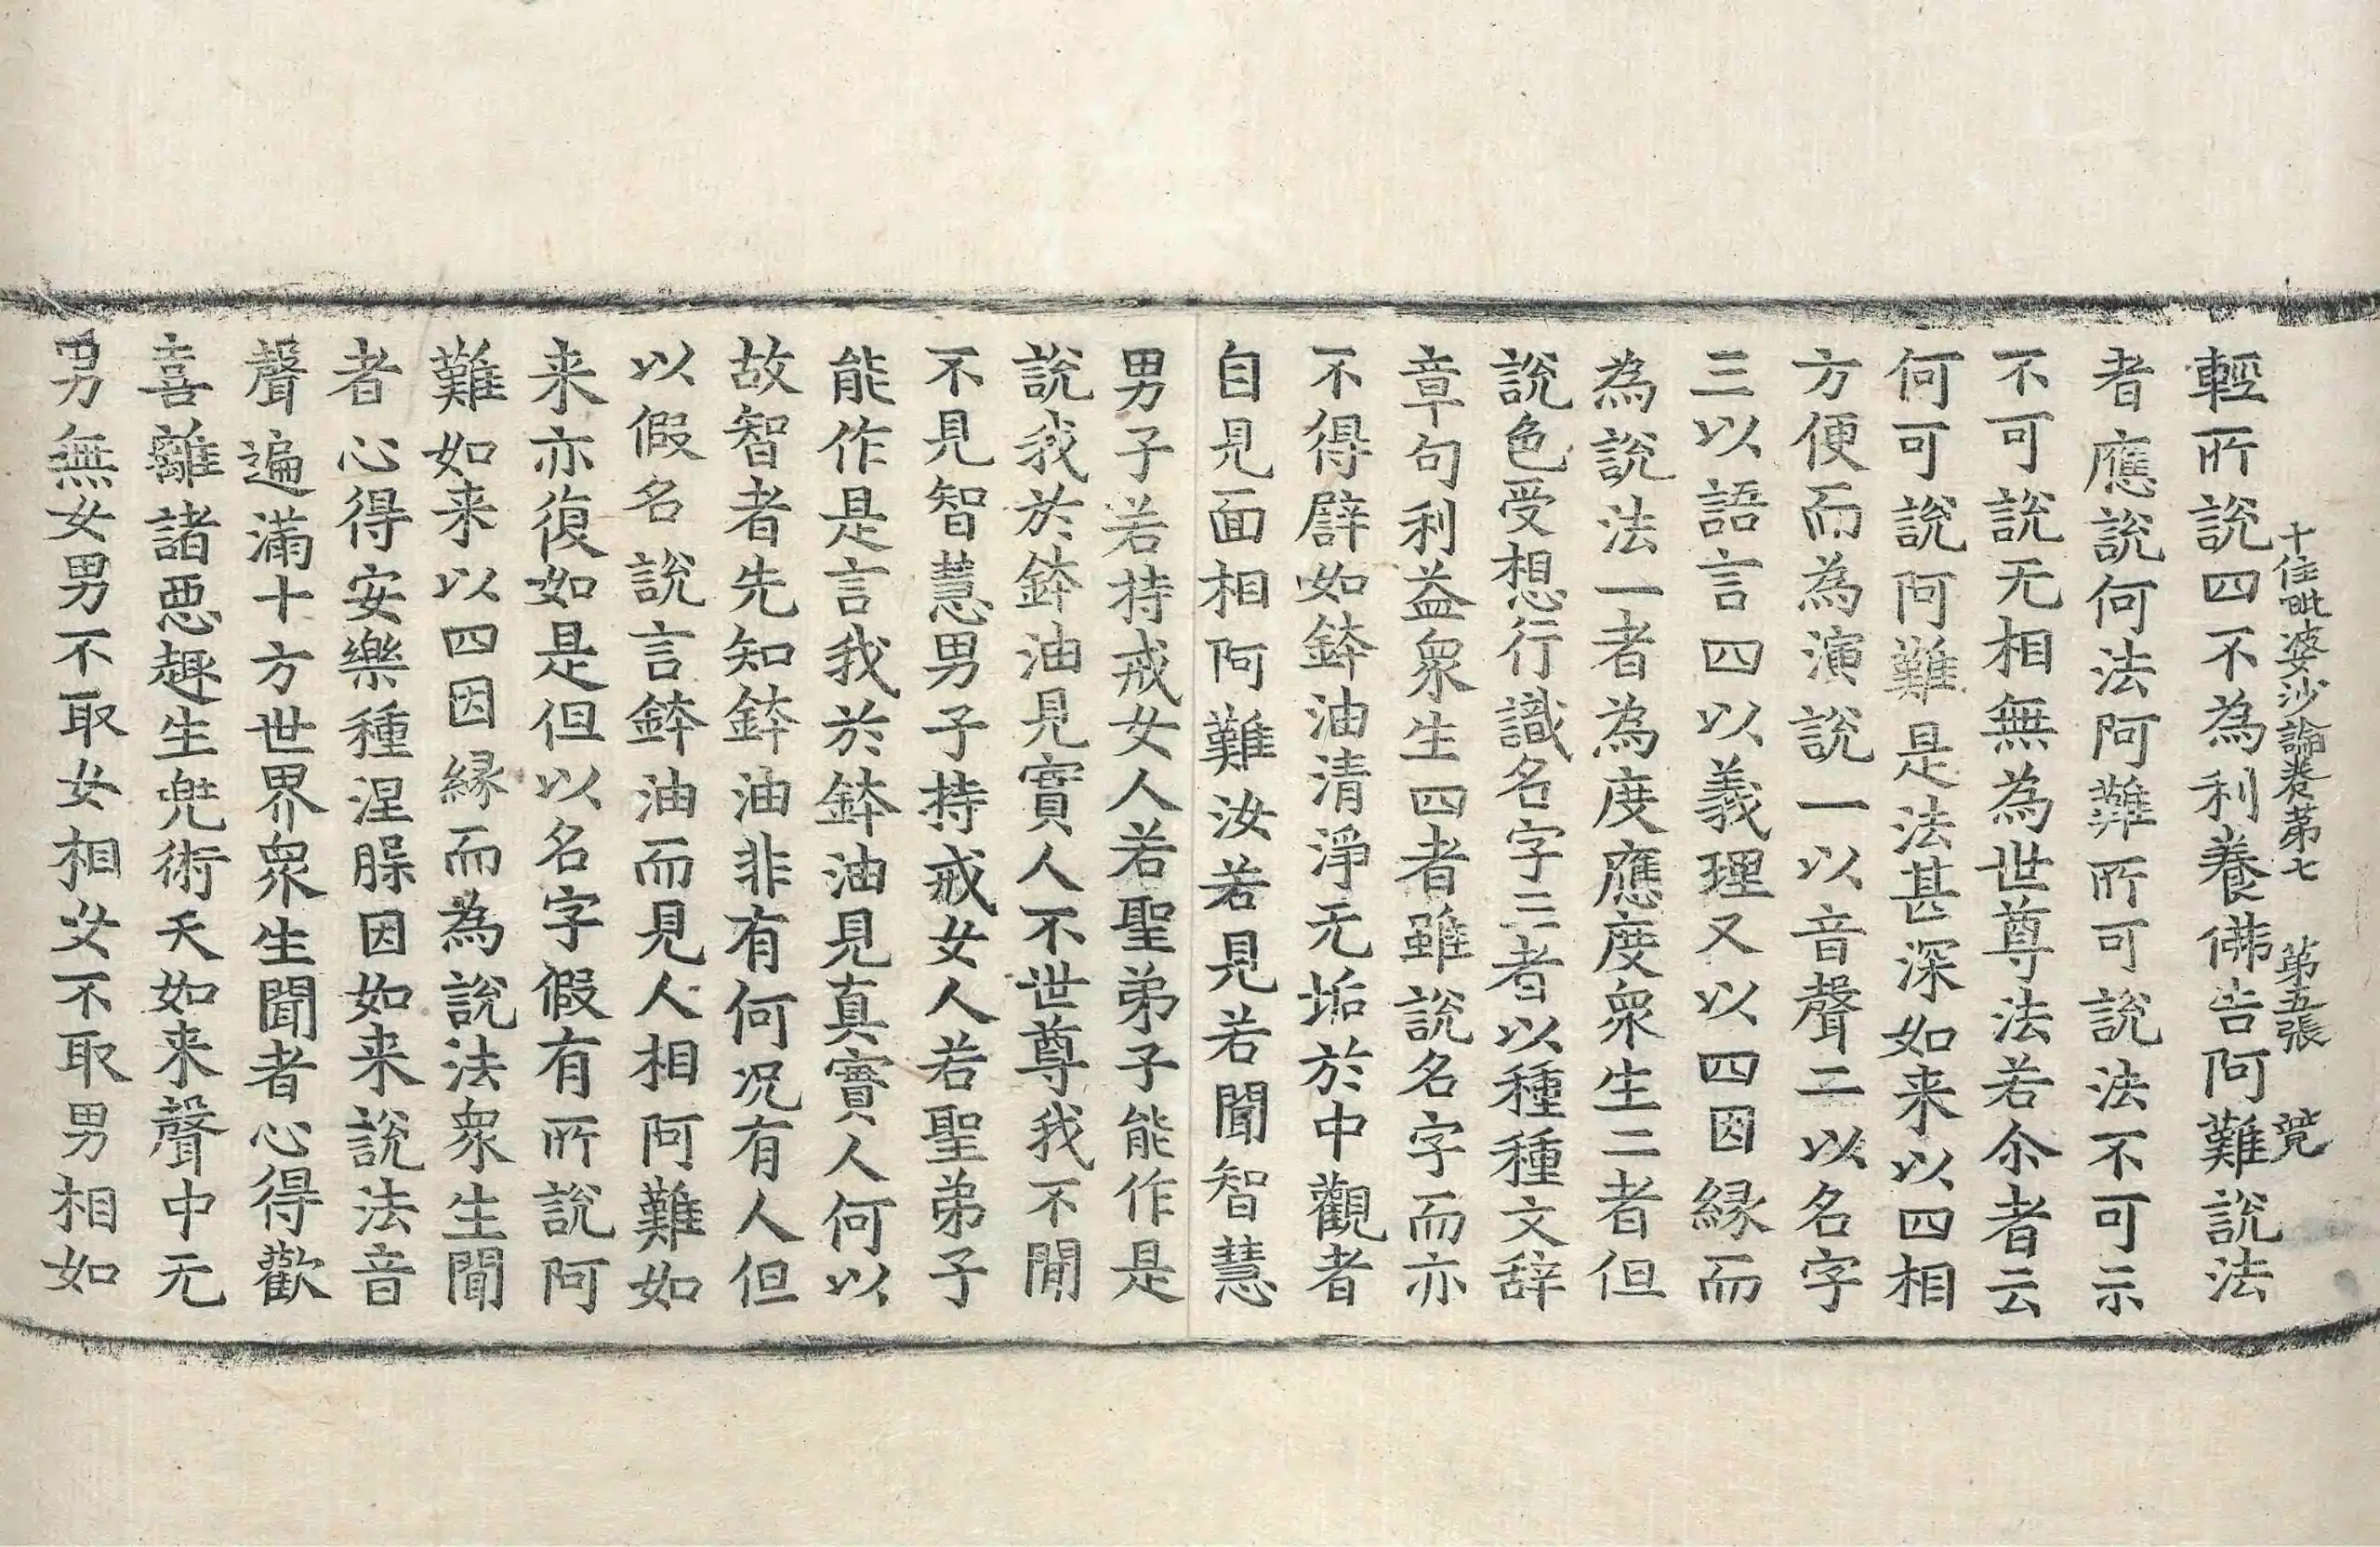 十住毗婆沙論卷第七 第五張 䇓
輕所說四不為利養佛告阿難說法
者應說何法阿難所可說法不可示
不可說无相無為世尊法若尒者云
何可說阿難是法甚深如来以四相
方便而為演說一以音聲二以名字
三以語言四以義理又以四因縁而
為說法一者為度應度衆生二者但
說色受想行識名字三者以種種文辞
章句利益衆生四者雖說名字而亦
不得譬如鉢油清淨无垢於中觀者
自見面相阿難汝若見若聞智慧
男子若持戒女人若聖弟子能作是
說我於鉢油見實人不世尊我不聞
不見智慧男子持戒女人若聖弟子
能作是言我於鉢油見真實人何以
故智者先知鉢油非有何况有人但
以假名說言鉢油而見人相阿難如
来亦復如是但以名字假有所說阿
難如来以四因縁而為說法衆生聞
者心得安樂種涅槃因如来說法音
聲遍滿十方世界衆生聞者心得歡
喜離諸惡趣生兠術天如来聲中无
男無女男不取女相女不取男相如